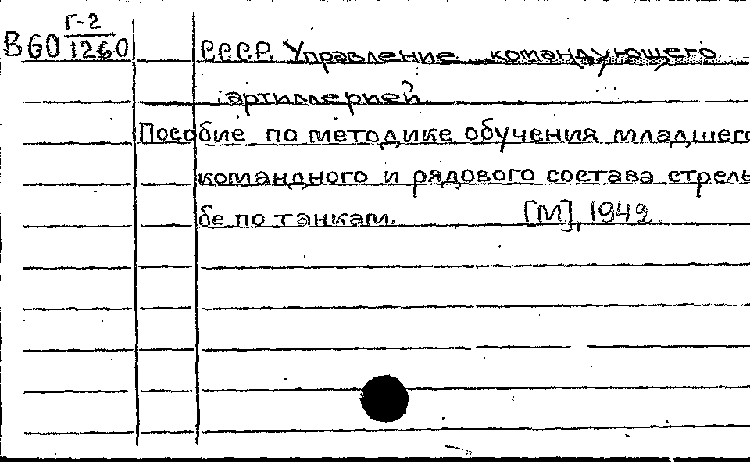 Г-2
В60 1260 СССР. Управление командующего
артиллерией.
Пособие по методике обучения младшего
командного и рядового состава стрель
бе по танкам. [М], 1949.